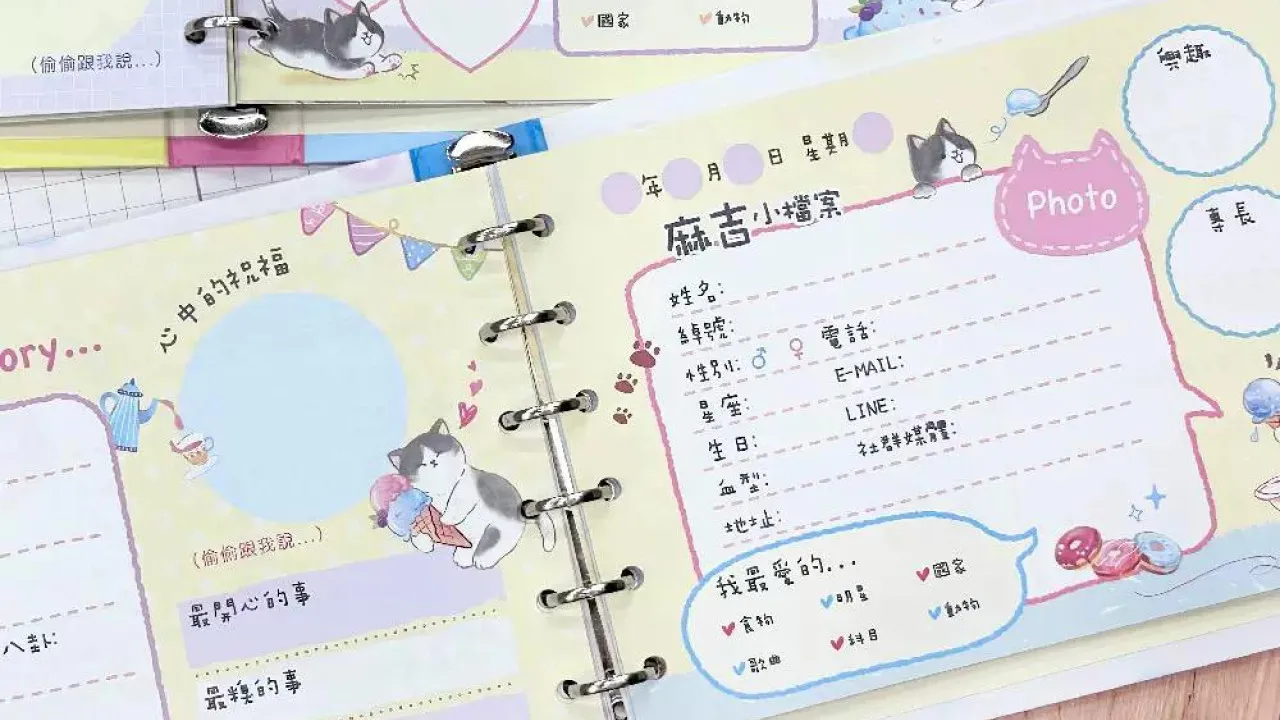 (偷偷跟我說...)
國家
動物
ory...
心中的祝福
(偷偷跟我說...)
最開心的事
最糗的事
八卦:
年 月 日 星期
麻吉小檔案
Photo
姓名:
綽號:
性別: ♂ ♀ 電話:
星座: E-MAIL:
生日: LINE:
血型: 社群媒體:
地址:
我最愛的...
食物 明星 國家
歌曲 科目 動物
興趣
專長